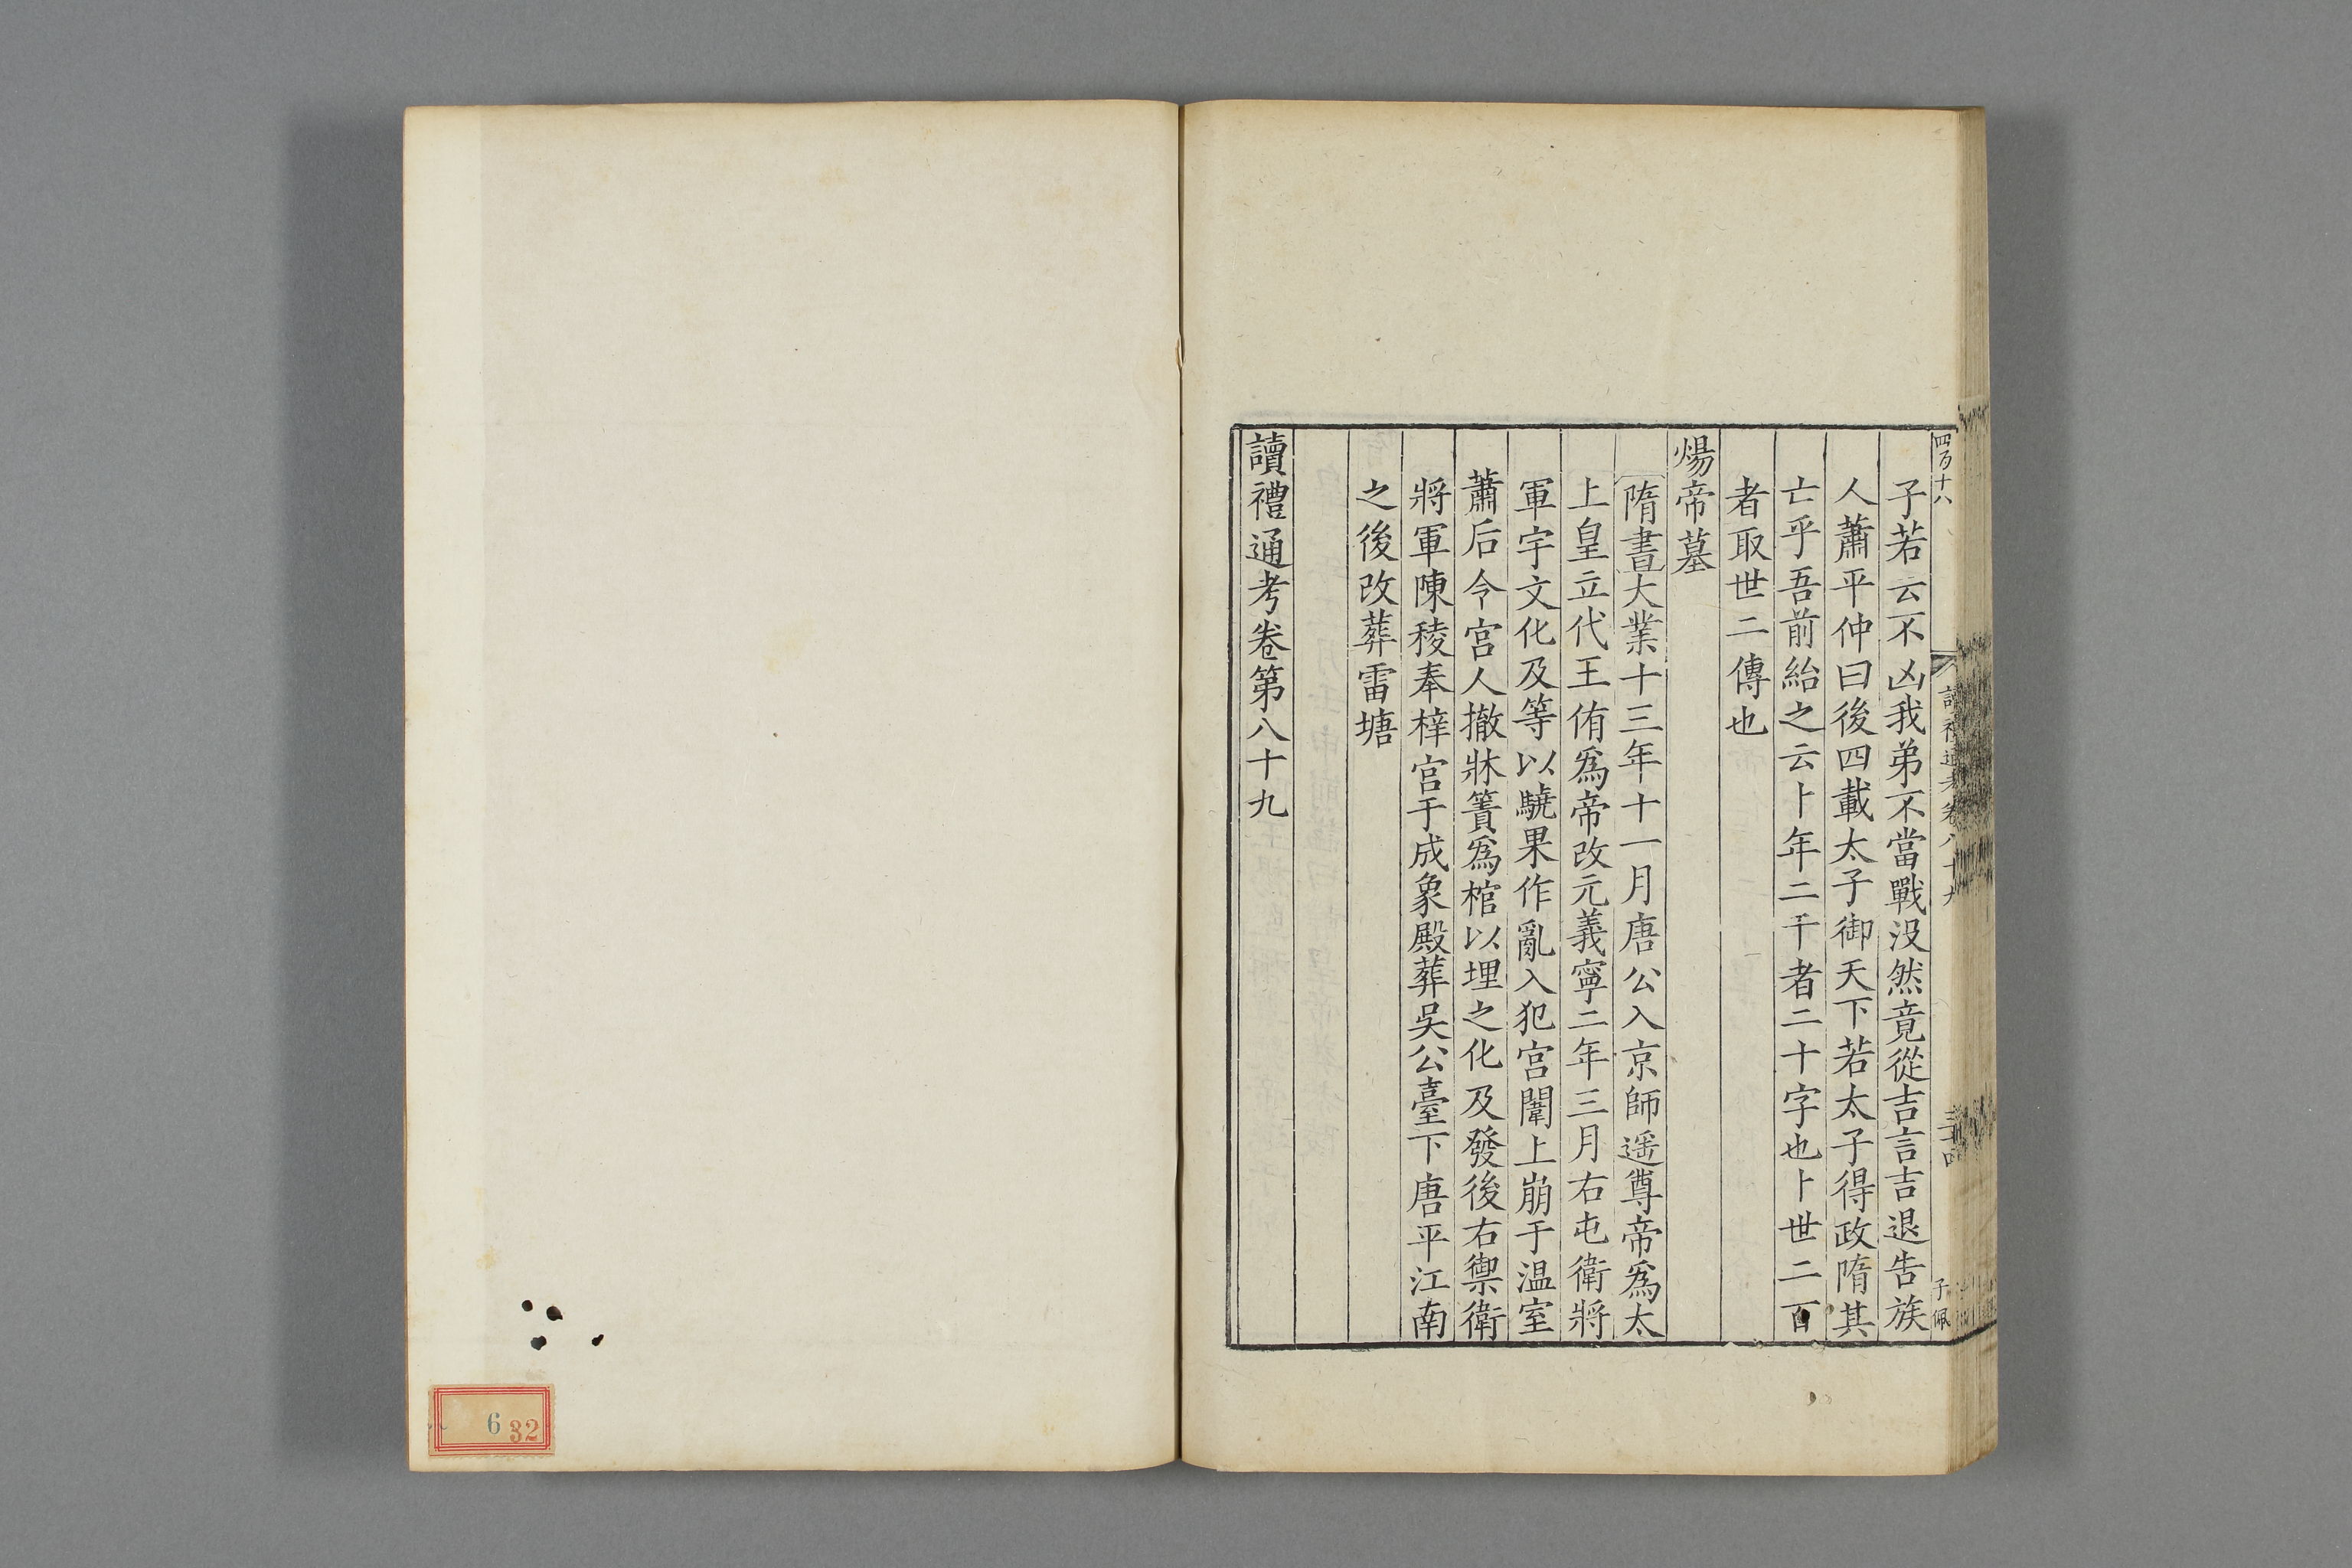 四百十八
讀禮通考卷八十九
子佩
子若云不凶我弟不當戰没然竟從吉言吉退告族
人蕭平仲曰後四載太子御天下若太子得政隋其
亡乎吾前紿之云卜年二千者二十字也卜世二百
者取世二傳也
煬帝墓
隋書大業十三年十一月唐公入京師遥尊帝爲太
上皇立代王侑爲帝改元義寧二年三月右屯衛將
軍宇文化及等以驍果作亂入犯宫闈上崩于温室
蕭后令宫人撤牀簀爲棺以埋之化及發後右禦衛
將軍陳稜奉梓宫于成象殿葬吴公臺下唐平江南
之後改葬雷塘
讀禮通考卷第八十九
6 32